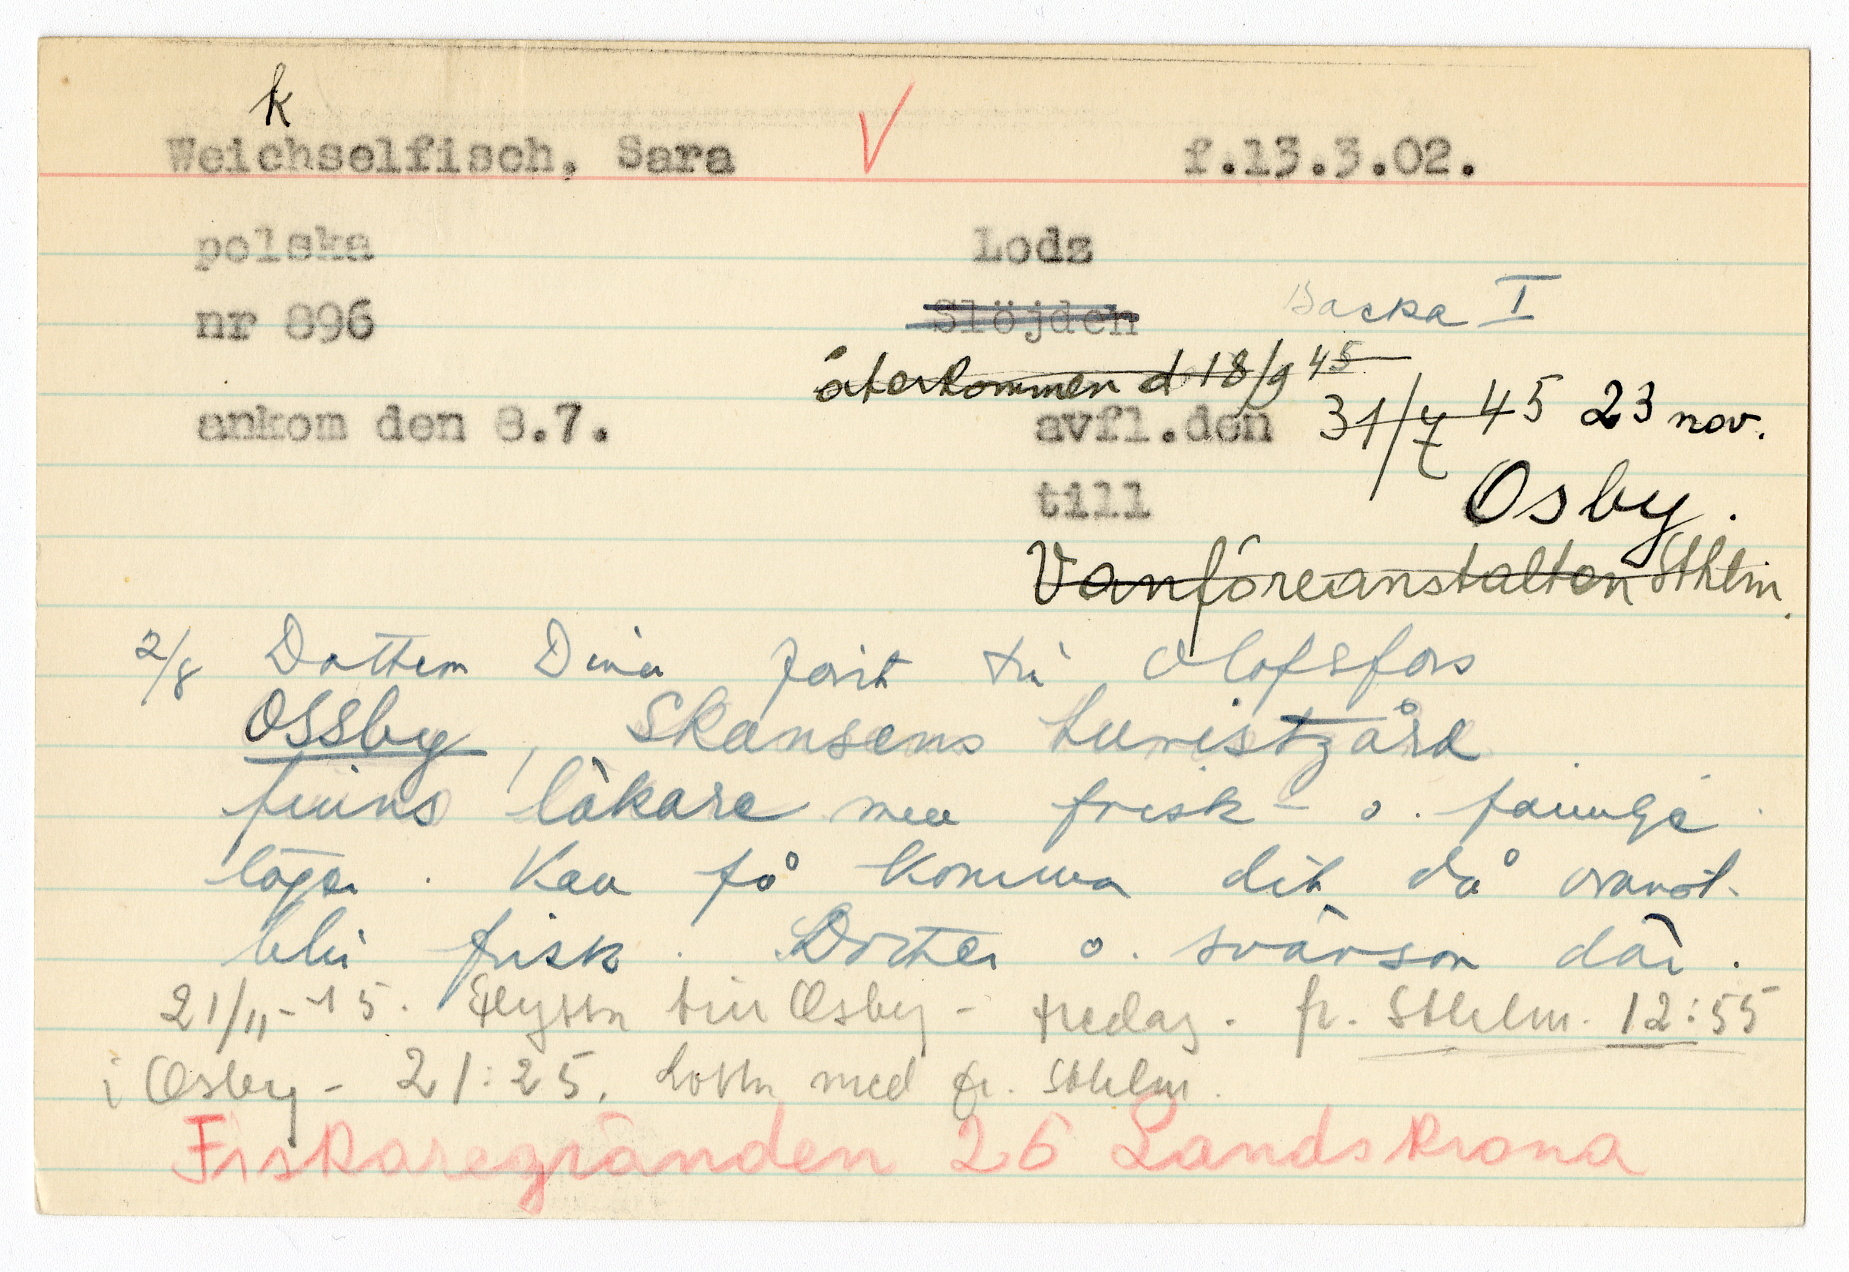 k
Weichselfisch, Sara V f.13.3.02.
polska Lodz
nr 896 Slöjden Backa I
återkommen d 18/9 45
ankom den 8.7. avfl.den 31/7 45 23 nov.
till Osby.
Vanföreanstalten Sthlm.
2/8 Dottern Dina rest till Olofsfors
OSSby, Skansens turistgård
finns läkare med frisk- o. familje
läger. Kan få komma dit då
blir frisk. Dotter o. svärson där.
21/11-45. till Osby - fredag. fr. Sthlm. 12:55
i Osby - 21:25. Lotta med fr. Sthlm.
Fiskaregränden 26 Landskrona